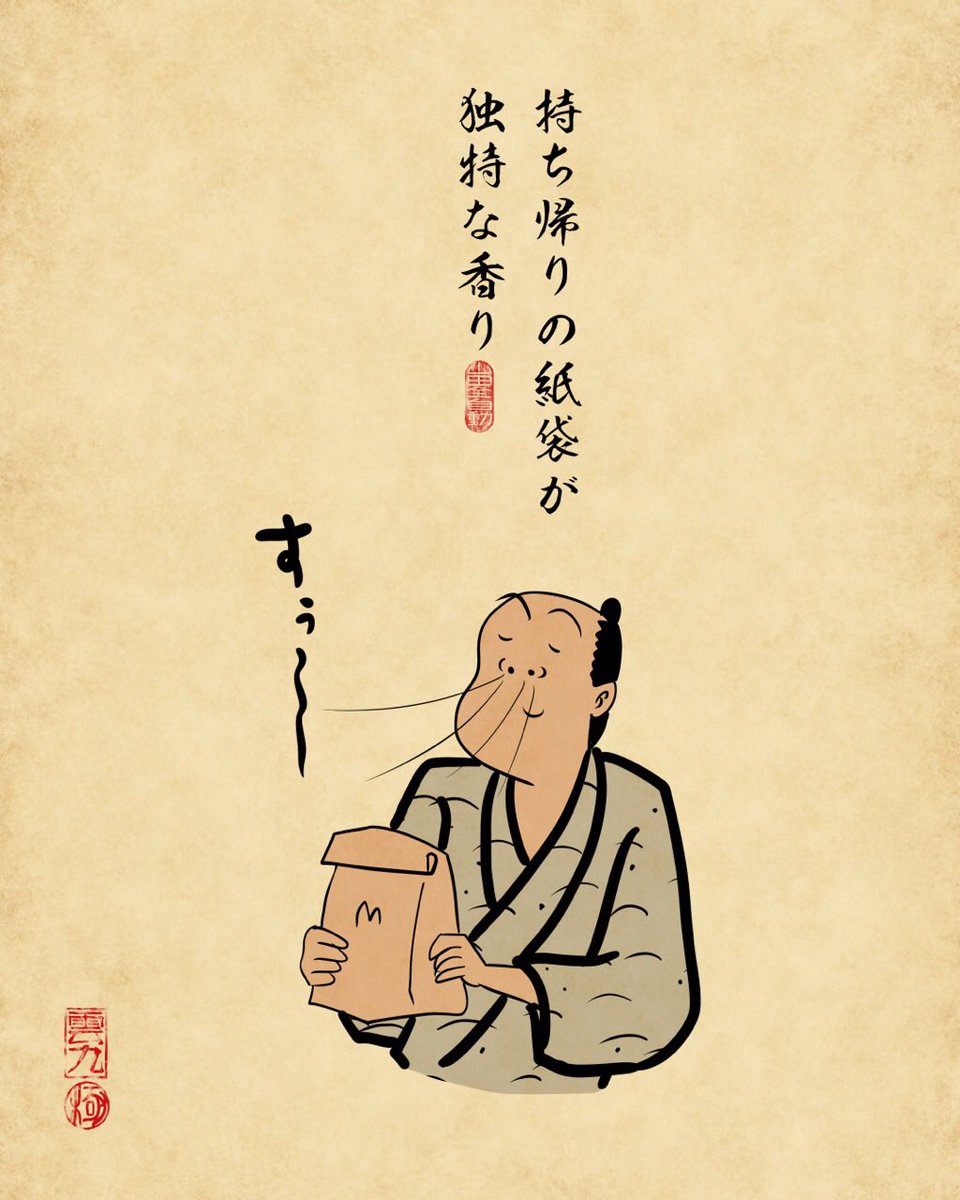 持ち帰りの紙袋が
独特な香り
すぅ〜
M
雲九
極